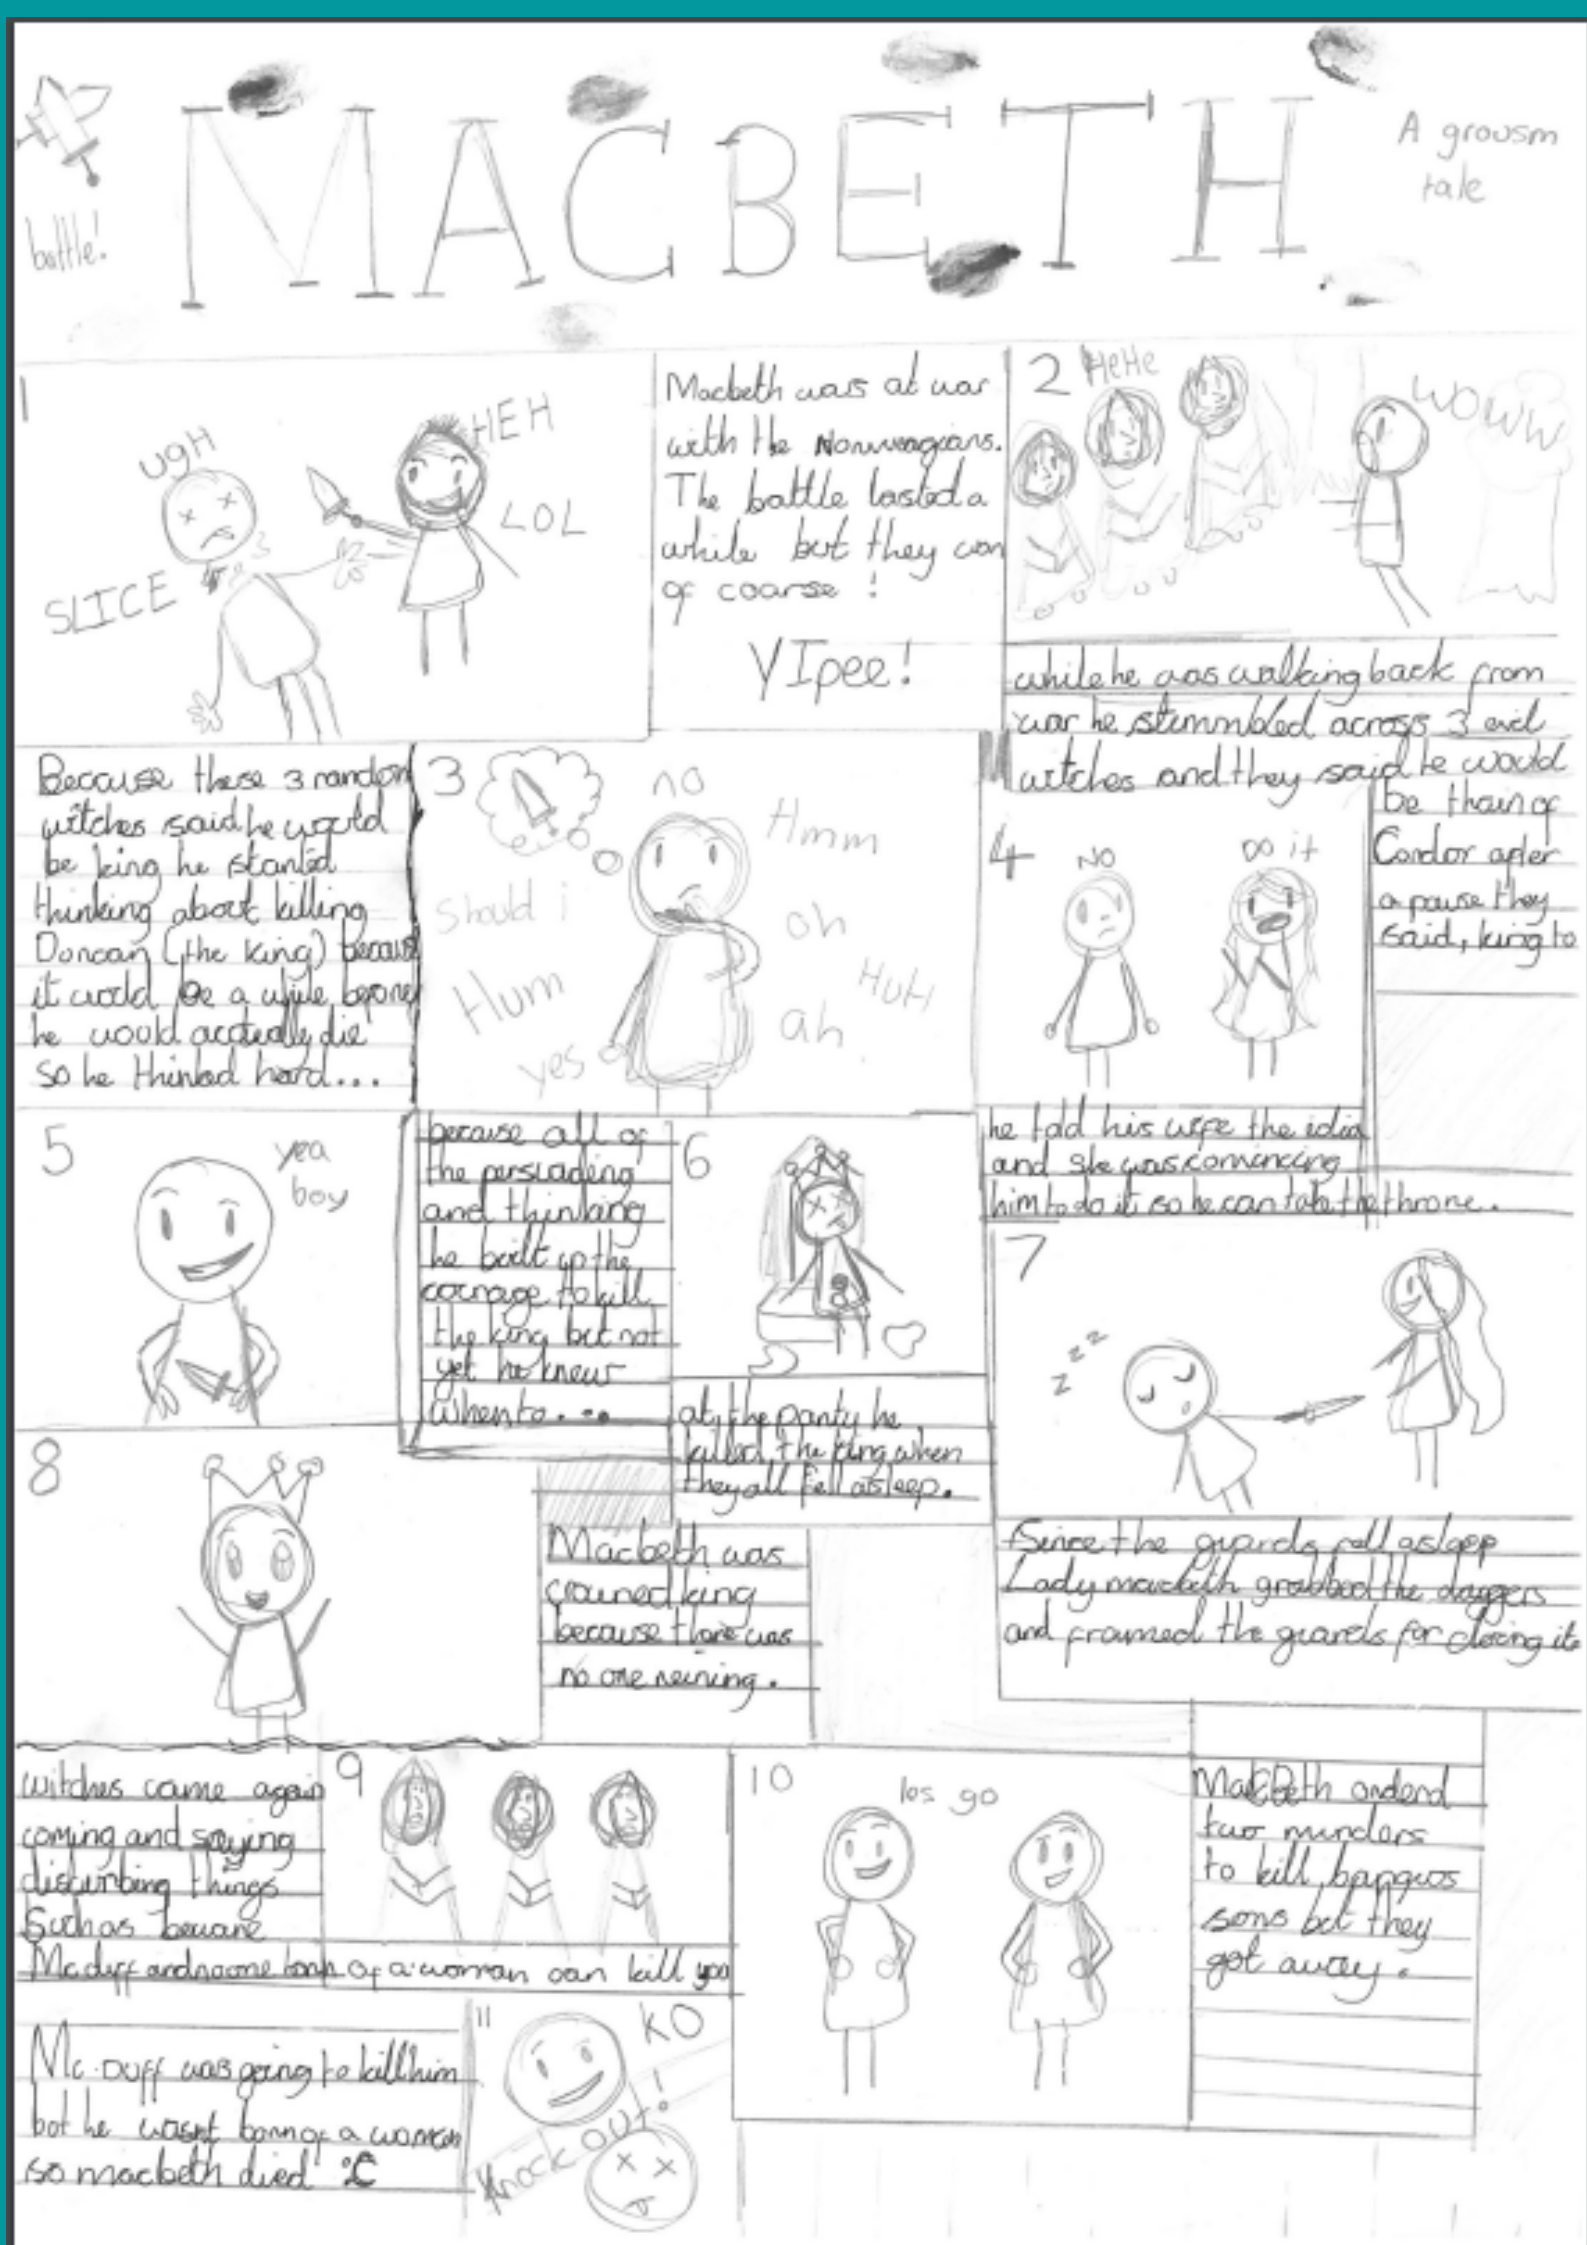 MACBETH
battle!
A grousm
tale
1
UGH
HEH
LOL
SLICE
Macbeth was at war
with the Norwegians.
The battle lasted a
while but they won
of coarse !
YIpee!
2
HeHe
WOWW
while he was walking back from
war he stummbled across 3 evil
witches and they said he would
be thain of
Condor after
a pause they
said, king to
Because these 3 random
witches said he would
be king he started
thinking about killing
Duncan (the king) because
it would be a while before
he would acctually die
so he thinked hard...
3
no
Hmm
should i
oh
Hum
HUH
ah
yes
4
NO
DO it
he told his wife the idia
and she was convincing
him to do it so he can take the throne.
5
yea
boy
because all of
the persuading
and thinking
he built up the
courage to kill
the king but not
yet he knew
when to...
6
at the party he
killed the king when
they all fell asleep.
7
z z z
Since the guards fell asleep
Lady macbeth grabbed the daggers
and framed the guards for doing it
8
Macbeth was
crowned king
because there was
no one reining.
9
witches came again
coming and saying
disturbing things
Such as beware
Mc duff and no one born of a woman can kill you
10
los go
MacBeth orderd
two murders
to kill banquos
sons but they
got away.
11
KO
Knock out!
Mc Duff was going to kill him
but he wasnt born of a woman
so macbeth died